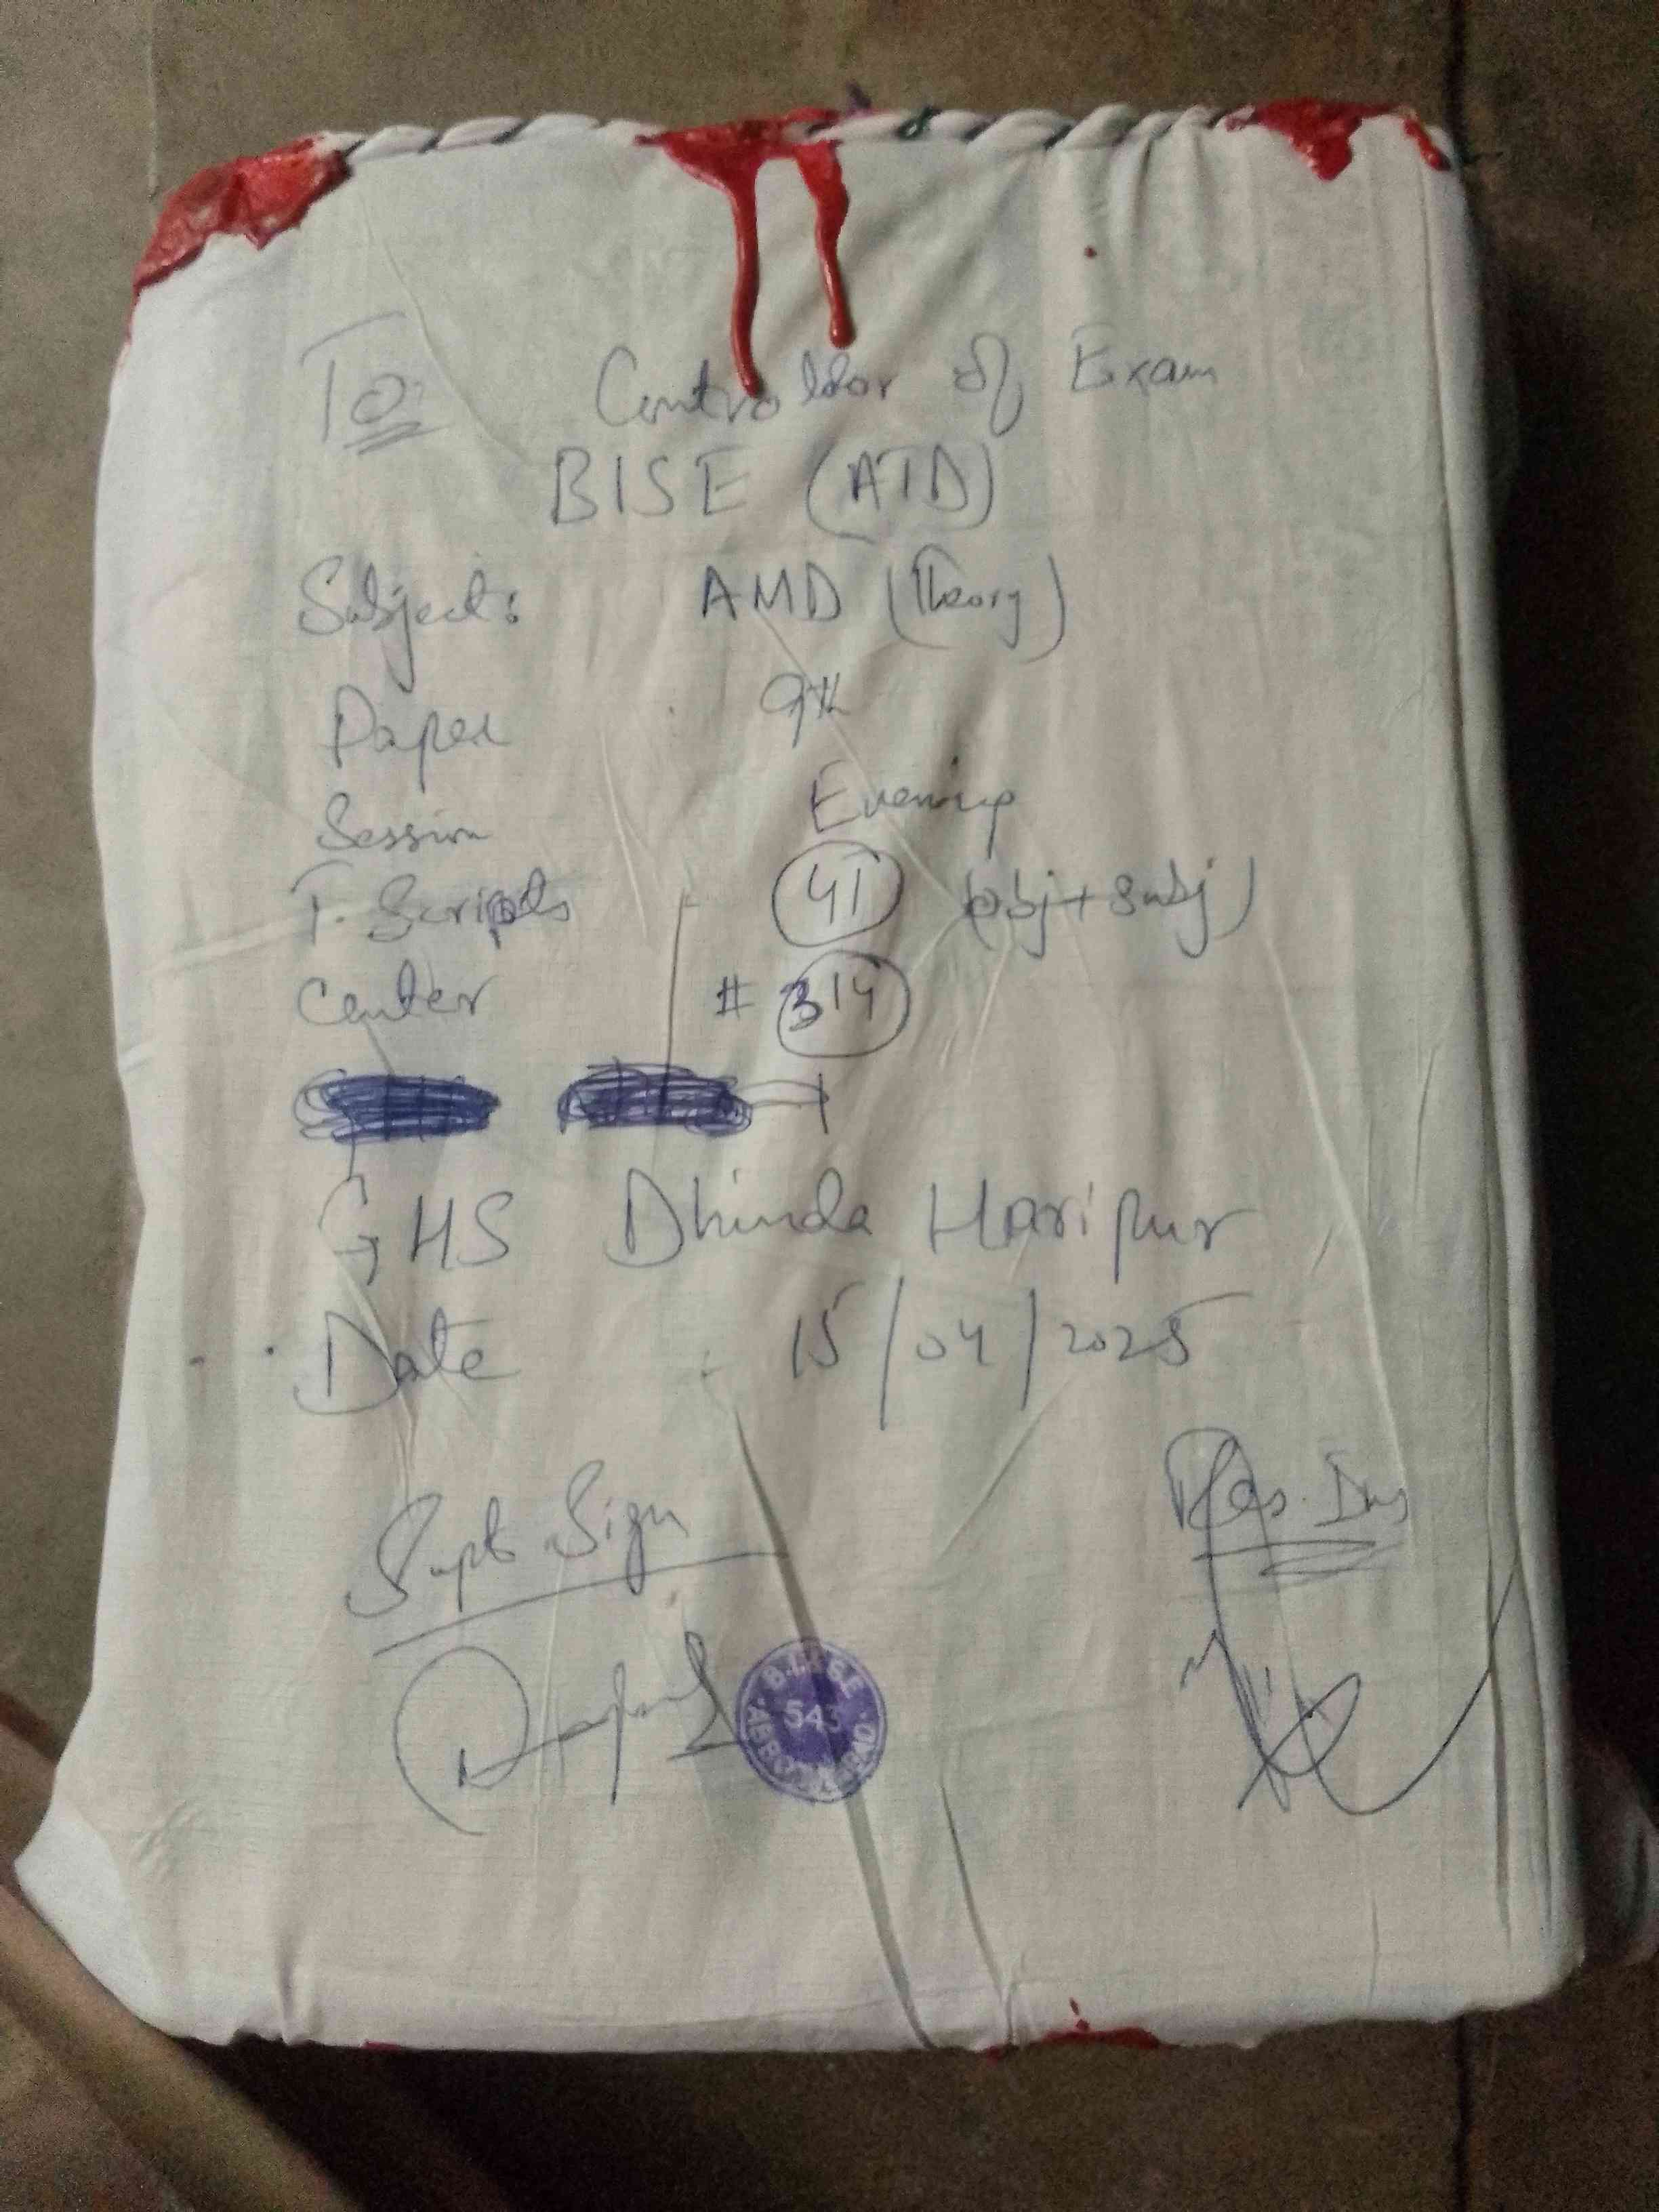 To: Controller of Exam
BISE (ATD)
Subject: AMD (Theory)
Paper 9th
Session Evening
T. Scripts 41 (obj + subj)
Center # 314
GHS Dhinda Haripur
Date 15/04/2025
Supt Sign
Res. Ins
B.I.S.E
543
ABBOTTABAD